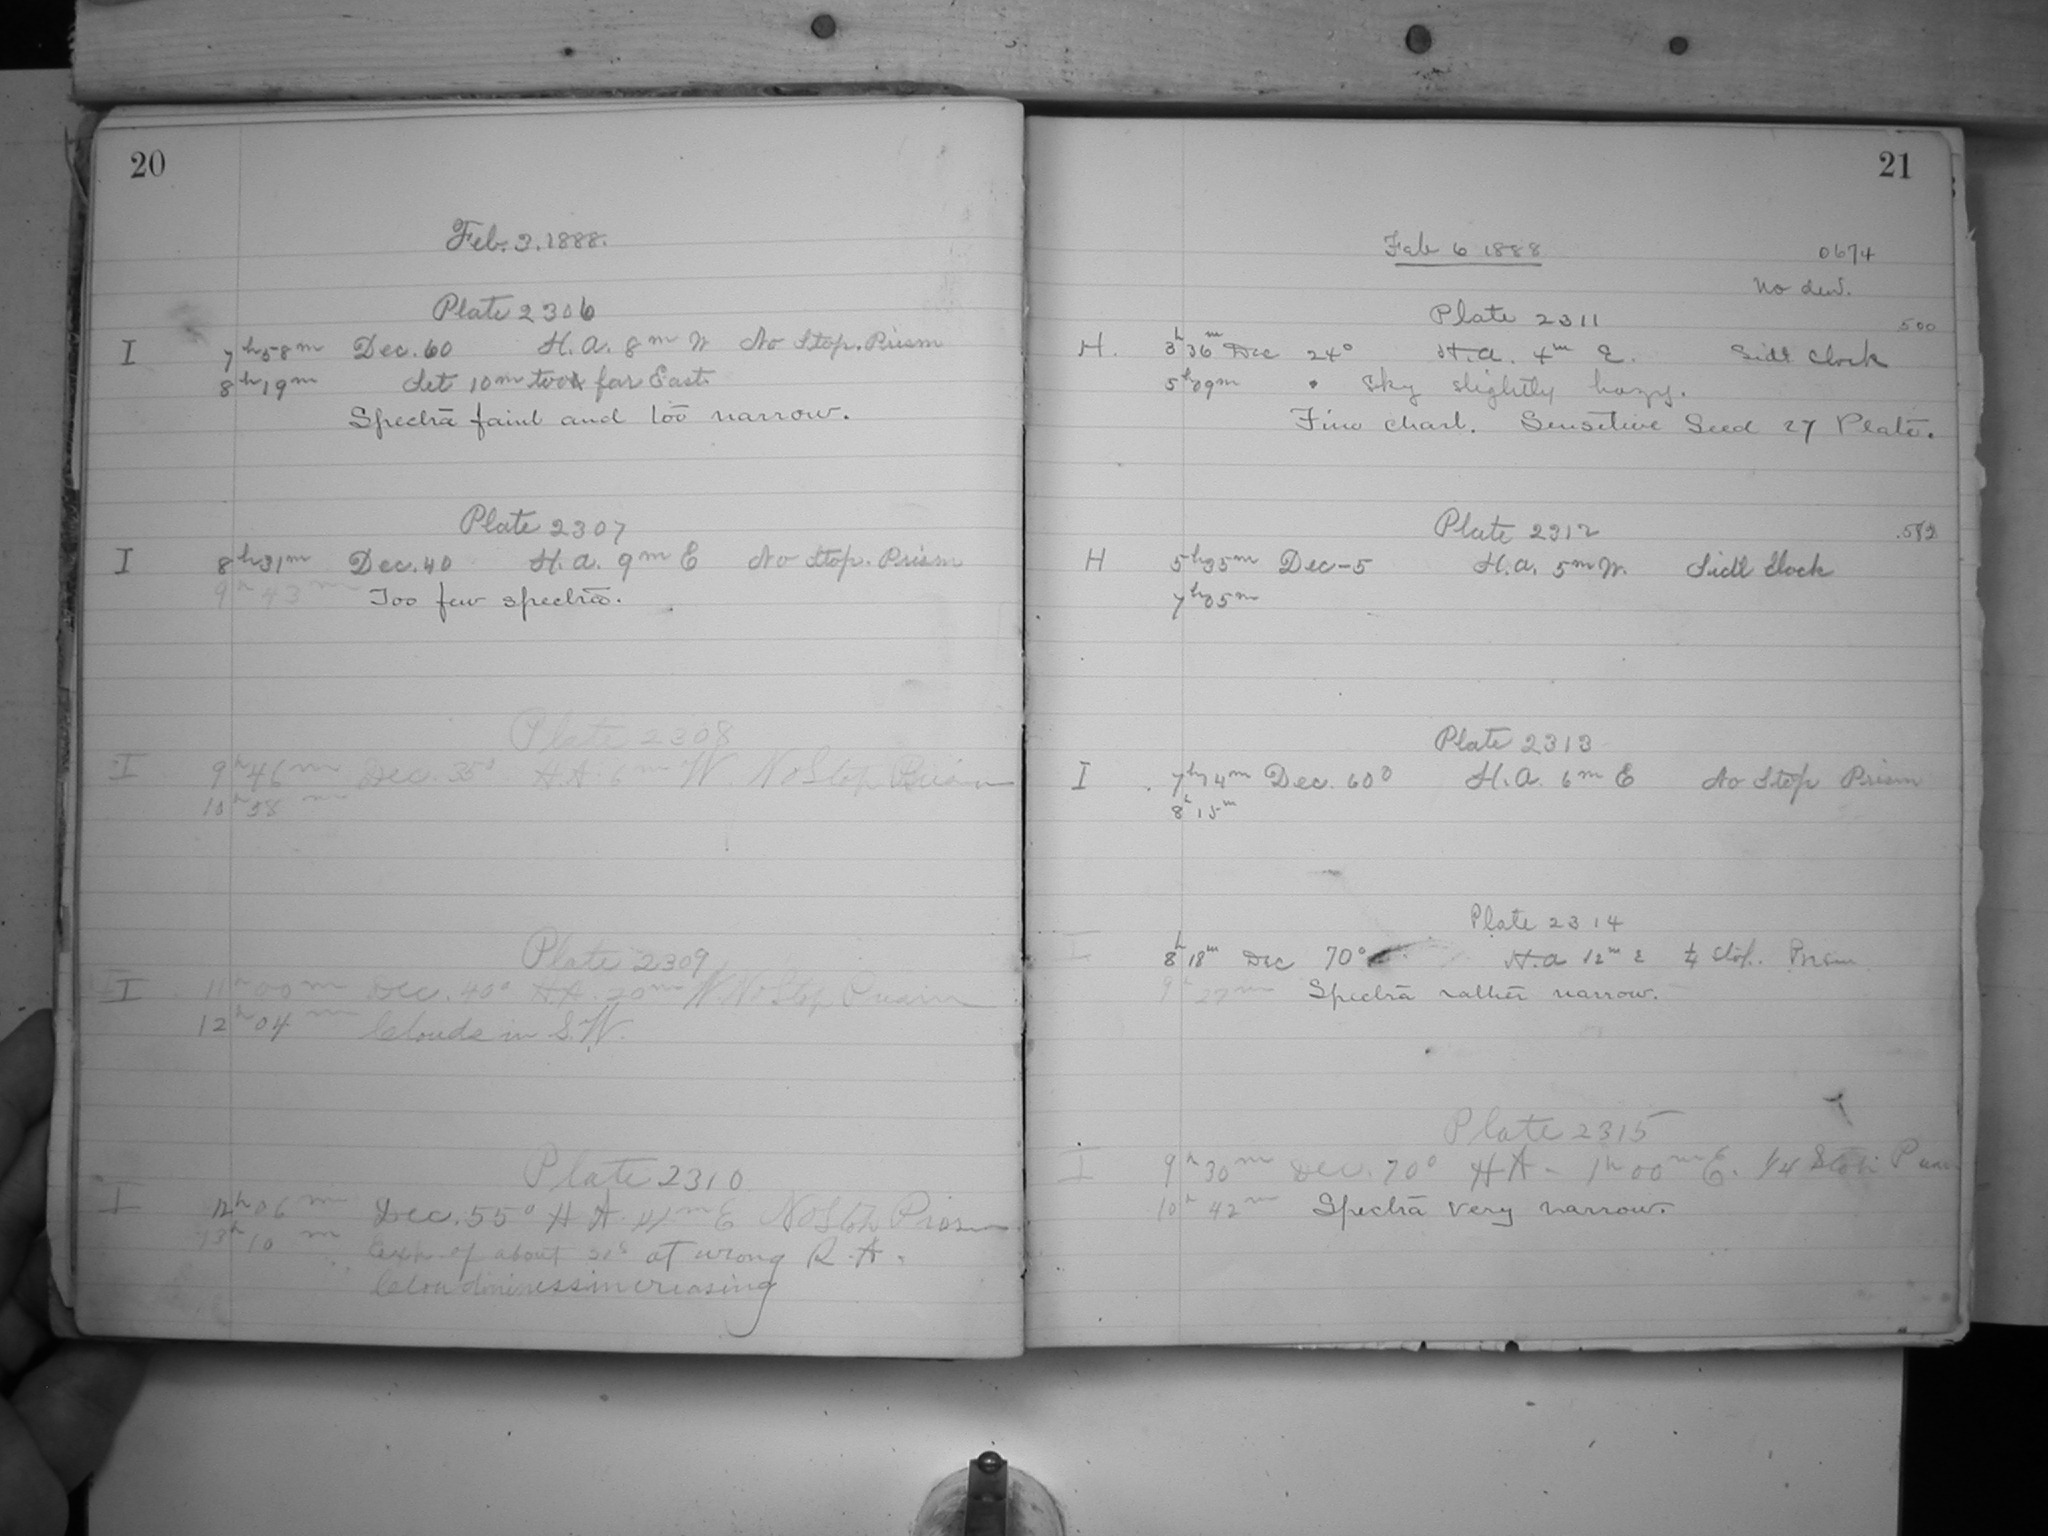 20
Feb. 3. 1888.
Plate 2306
I 7h58m Dec. 60 H.A. 8m W No Stop. Prism
8h19m Set 10m too far East.
Spectra faint and too narrow.
Plate 2307
I 8h31m Dec. 40 H.A. 9m E No Stop. Prism
9h43m Too few spectra.
Plate 2308
I 9h46m Dec. 35° H.A. 6m W. No Stop Prism
10h58m
Plate 2309
I 11h00m Dec. 40° H.A. 20m W. No Stop Prism
12h04m Clouds in S.W.
Plate 2310
I 12h06m Dec. 55° H.A. m E No Stop Prism
13h10m Exp. of about at wrong R.A.
Cloudiness increasing
21
Feb 6 1888 0674
No dew.
Plate 2311 500
H. 3h36m Dec 24° H.A. 4m E. Sidl Clock
5h09m Sky slightly hazy.
Fine chart. Sensitive Seed 27 Plate.
Plate 2312 .582
H 5h35m Dec -5 H.A. 5m W. Sidl Clock
7h05m
Plate 2313
I 7h14m Dec. 60° H.A. 6m E No Stop Prism
8h15m
Plate 2314
I 8h18m Dec 70° H.A 12m E 1/4 Stop. Prism
9h27m Spectra rather narrow.
Plate 2315
I 9h30m Dec. 70° H.A. 1h00m E. 1/4 Stop Prism
10h42m Spectra very narrow.